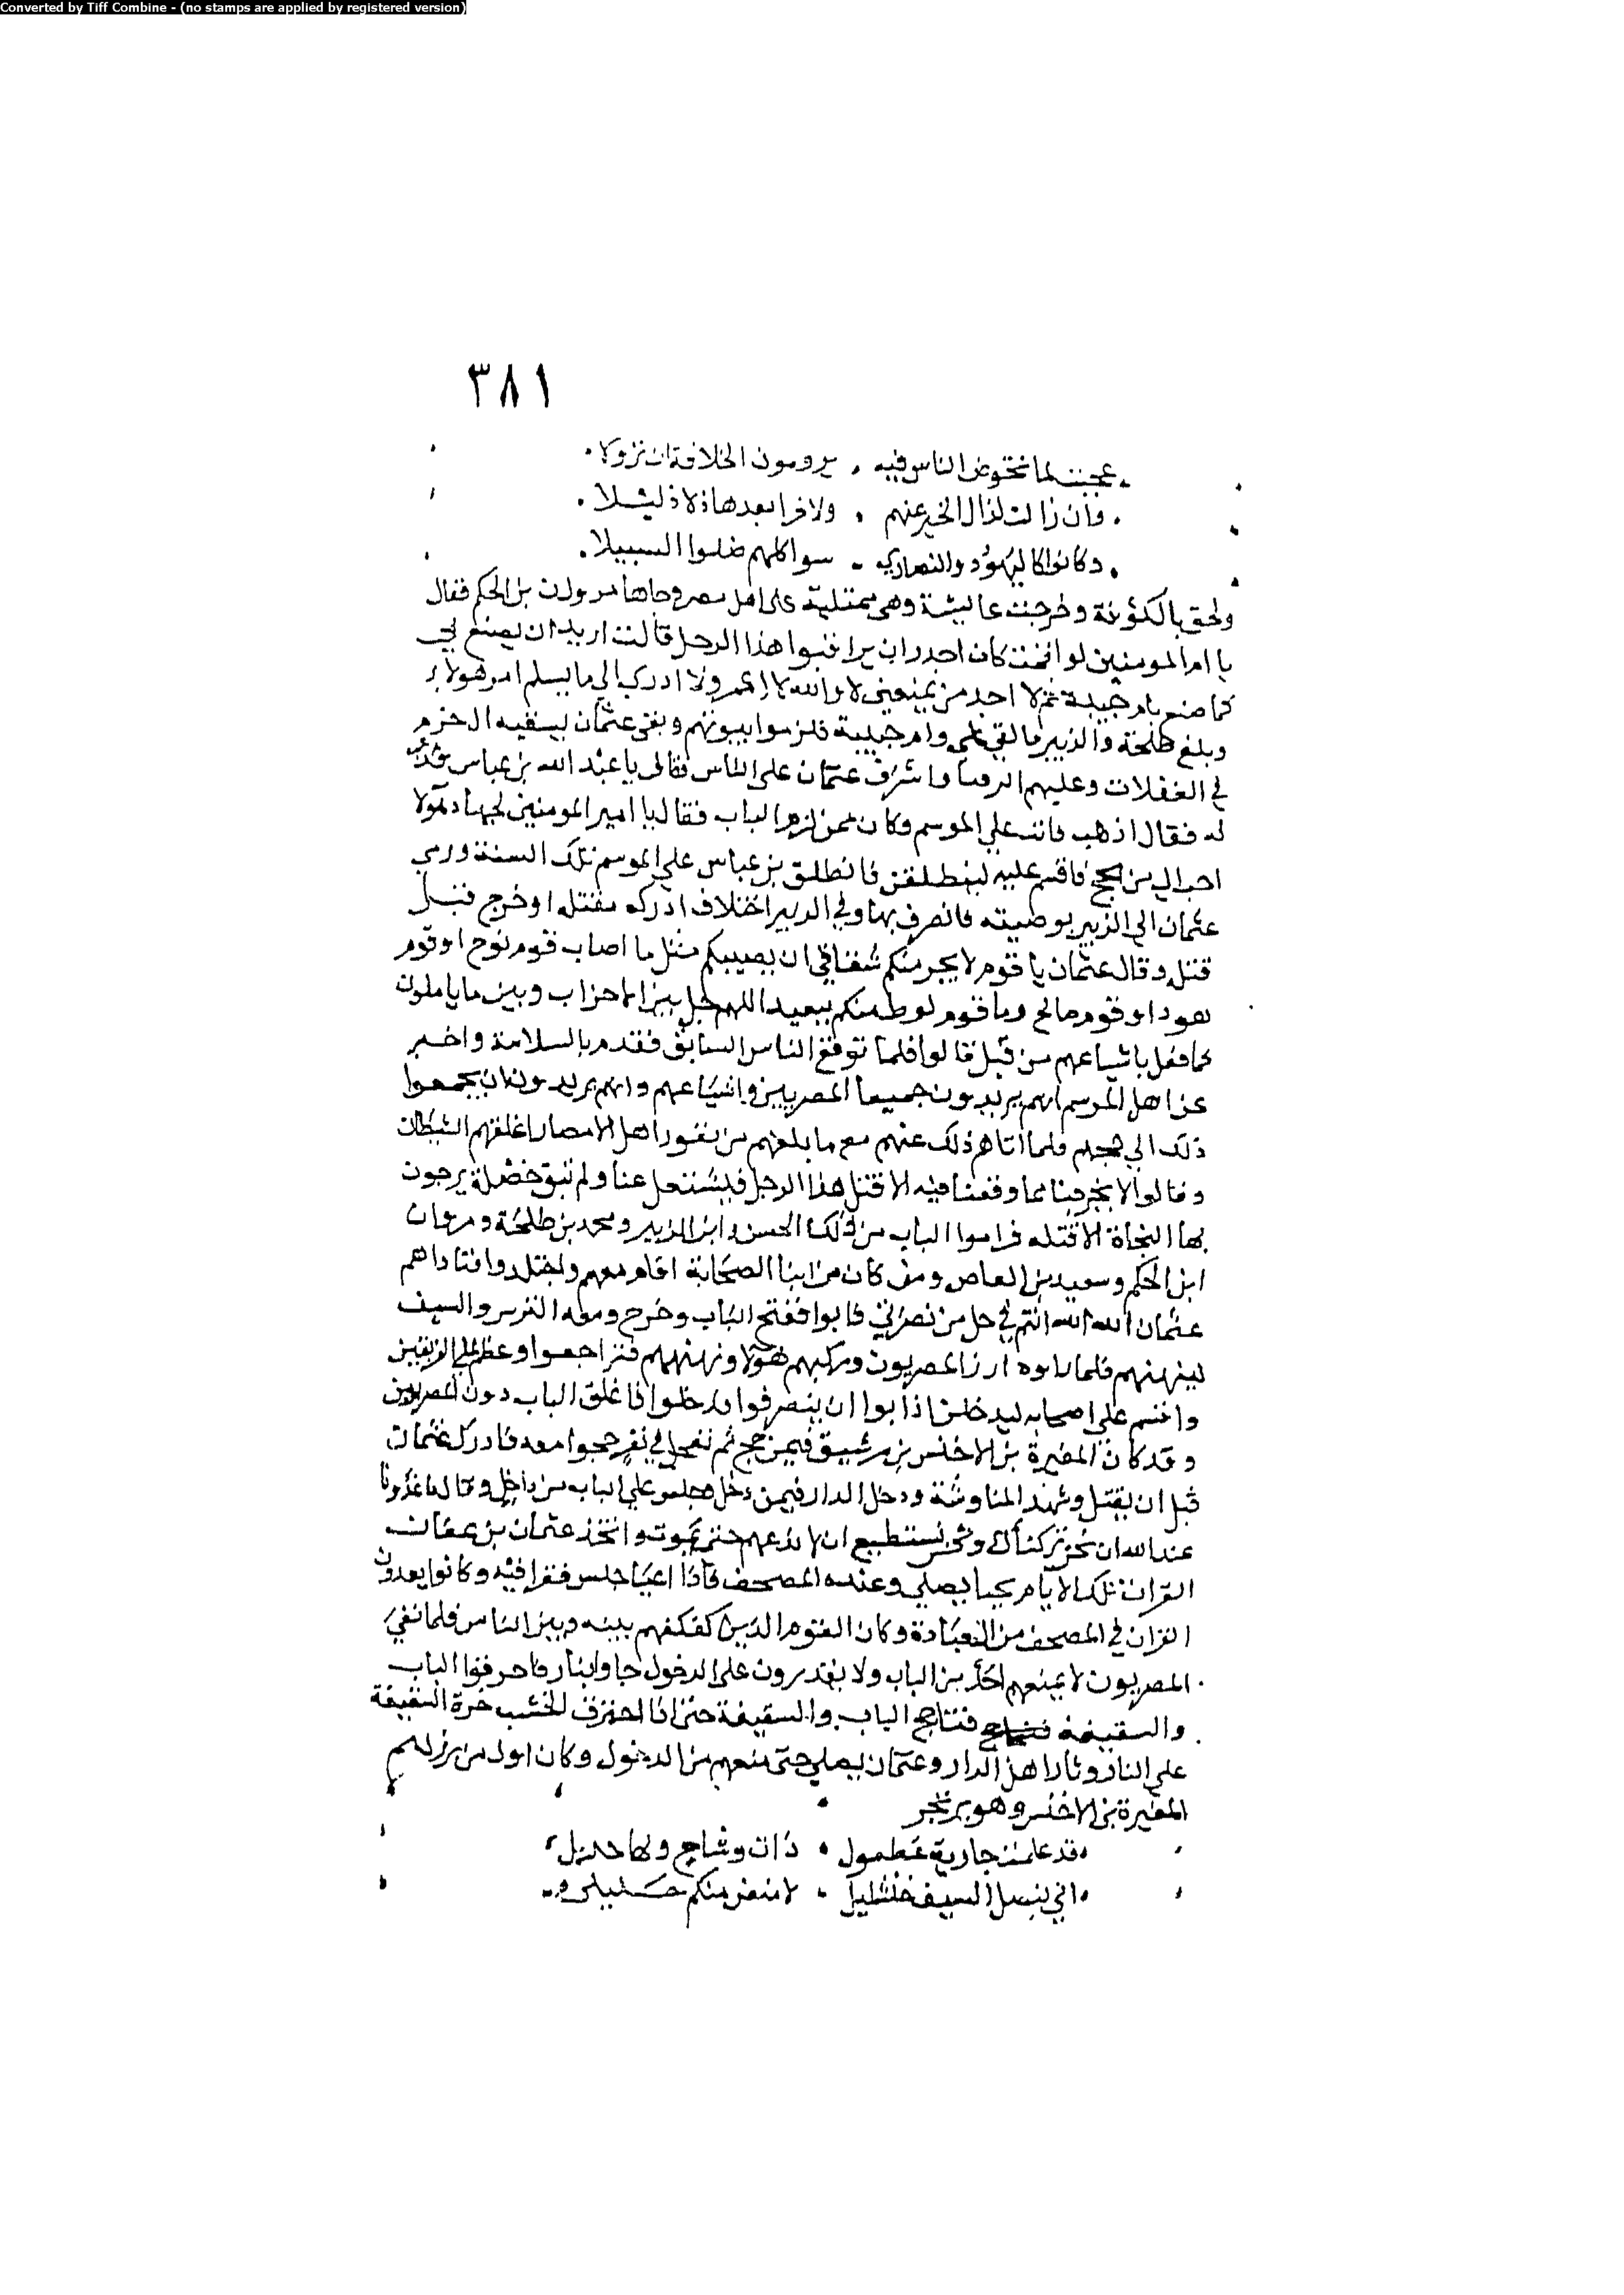 Converted by Tiff Combine - (no stamps are applied by registered version)
٣٨١
عجبت لما يخوض الناس فيه . يرومون الخلافة ان تزولا
وان زالت لزال الخير عنهم . ولاقوا بعدها ذلا ذليلا
وكانوا كاليهود والنصاري . سوا كلهم ضلوا السبيلا
ولحق بالكوفة وخرجت عايشة وهي ممتلية على اهل مصر وجاها مروان بن الحكم فقال
يا ام المومنين لو اقمت كان اجدر ان يراقبوا هذا الرجل قالت اريد ان يصنع بي
كما صنع بام حبيبة ثم لا اجد من يمنعني لا والله لا ولا ادري الي ما يسلم امر هولاء
وبلغ طلحة والزبير ما لقي علي وام حبيبة فلزموا بيوتهم وبقي عثمان يسقيه ال حزم
في الغفلات وعليهم الرقبا فاشرف عثمان على الناس فقال يا عبد الله بن عباس
له فقال اذهب فانت علي الموسم وكان ممن لزم الباب فقال يا امير المومنين لجهاد هولا
احب الي من الحج فاقسم عليه لينطلقن فانطلق بن عباس علي الموسم تلك السنة ورمي
عثمان الي الزبير بوصيته فانصرف بها وفي الزبير اختلاف ادرك مقتله او خرج قبل
قتله وقال عثمان يا قوم لا يجرمنكم شقاقي ان يصيبكم مثل ما اصاب قوم نوح او قوم
هود او قوم صالح وما قوم لوط منكم ببعيد اللهم حل بين الاحزاب وبين ما ياملون
كما فعل باشياعهم من قبل قالوا فلما توقع الناس السابق فقدم بالسلامة واخبر
عن اهل الموسم انهم يريدون جميعا المصريين واشياعهم وانهم يريدون ان يجمعوا
ذلك الي حجهم فلما اتاهم ذلك عنهم مع ما بلغهم من نفور اهل الامصار اعلقهم الشيطان
وقالوا لا يخرجنا مما وقعنا فيه الا قتل هذا الرجل فيشتغل عنا ولم تبق خصلة يرجون
بها النجاة الا قتله فراموا الباب من ذلك الحسن وابن الزبير ومحمد بن طلحة ومروان
ابن الحكم وسعيد بن العاص ومن كان من ابنا الصحابة اقام معهم واجتلدوا فناداهم
عثمان الله الله انتم في حل من نصرتي فابوا ففتح الباب وخرج ومعه الترس والسيف
لينهنهم فلما راوه ارز المصريون وركبهم هولا ونهنههم فتراجعوا وعظم علي الفريقين
واقسم على اصحابه ليدخلن اذ ابوا ان ينصرفوا فدخلوا فاغلق الباب دون المصريين
وقد كان المغيرة بن الاخنس بن شريق فيمن حج ثم تعجل في نفر حجوا معه فادرك عثمان
قبل ان يقتل وشهد المناوشة ودخل الدار فيمن دخل وجلس علي الباب من داخل وقال ما عذرنا
عند الله ان نحن تركناك ونحن نستطيع ان لا ندعهم حتى نموت واتخذ عثمان بن عفان
القران تلك الايام نحبا يصلي وعنده المصحف فاذا اعيا جلس فقرا فيه وكانوا يعدون
القران في المصحف من العبادة وكان القوم الذين كفكفهم بينه وبين الناس فلما بقي
المصريون لا يمنعهم احد من الباب ولا يقدرون على الدخول جاوا بنار فاحرقوا الباب
والسقيفة فتاجج الباب والسقيفة حتى اذا احترق الخشب خرة السقيفة
علي الباب وثار اهل الدار وعثمان يصلي حتى منعهم من الدخول وكان اول من برز لهم
المغيرة بن الاخنس وهو يرتجز
قد علمت جارية عطبول . ذات وشاح ولها جديل
اني بنصل السيف خنشليل . لامنعن منكم خليلي